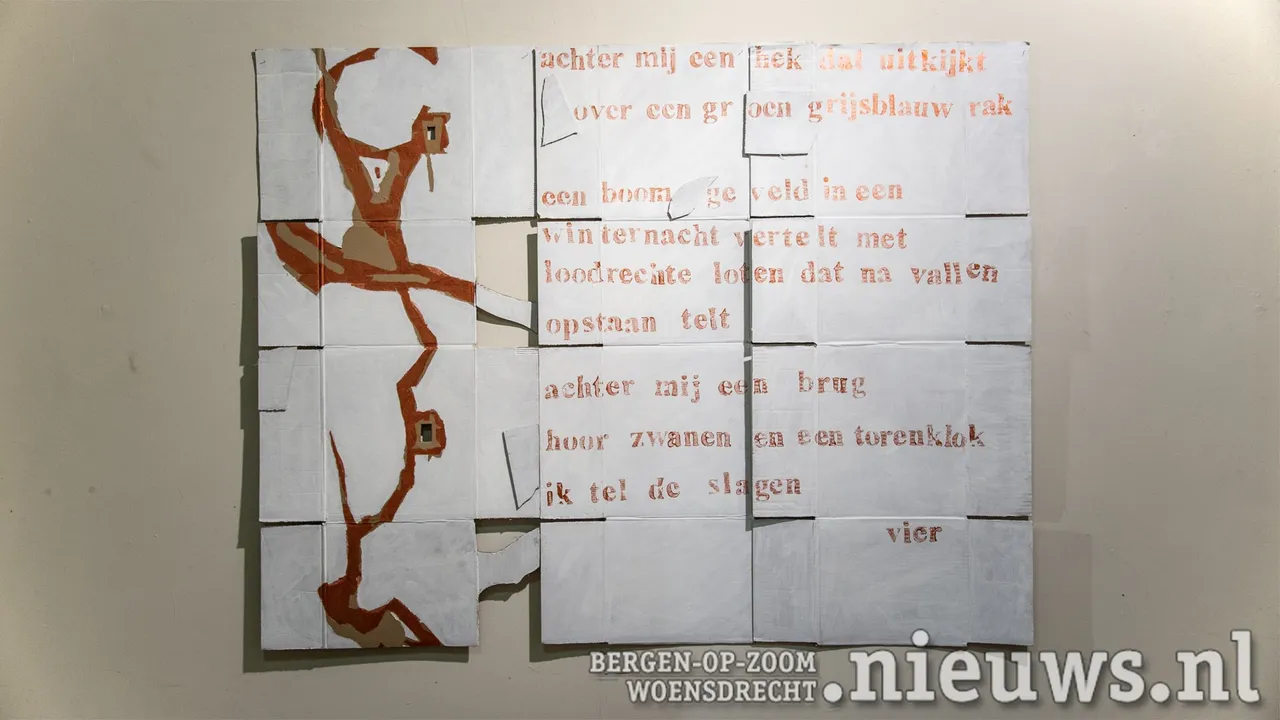 achter mij een hek dat uitkijkt
over een groen grijsblauw rak
een boom geveld in een
winternacht vertelt met
loodrechte loten dat na vallen
opstaan telt
achter mij een brug
hoor zwanen en een torenklok
ik tel de slagen
vier
BERGEN-OP-ZOOM
WOENSDRECHT
.nieuws.nl